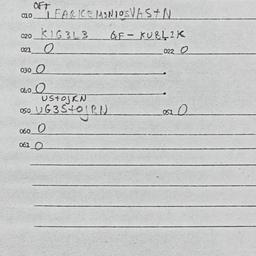 OFT
010 1 FARKEMONIOSVASTN
020 KIG3L3 GF-KUBL2K
021 0 022 0
030 0
040 0
USTOJRN
050 UG3STOJRN 051 0
060 0
061 0